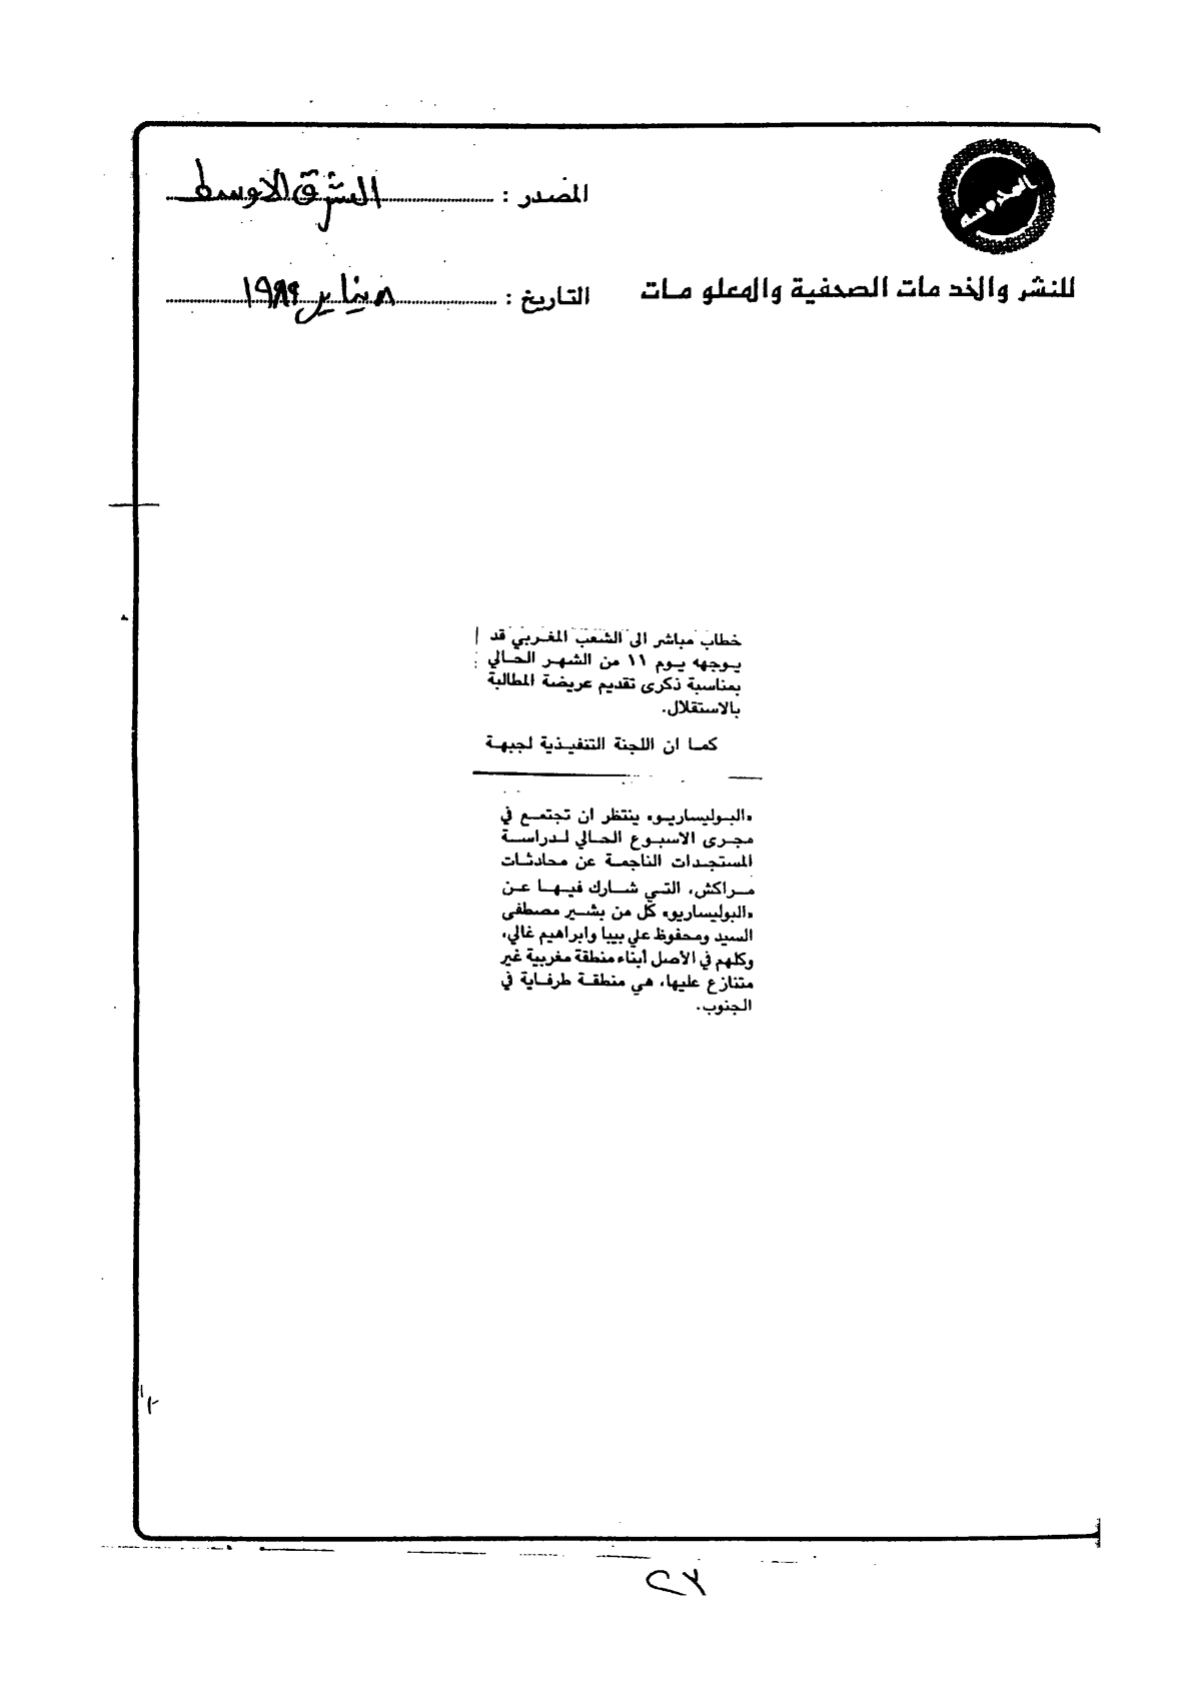 المصدر : الشرق الأوسط
للنشر والخدمات الصحفية والمعلومات
التاريخ : ٨ يناير ١٩٨٩
خطاب مباشر الى الشعب المغربي قد
يوجهه يوم ١١ من الشهر الحالي
بمناسبة ذكرى تقديم عريضة المطالبة
بالاستقلال.
كما ان اللجنة التنفيذية لجبهة
«البوليساريو» ينتظر ان تجتمع في
مجرى الاسبوع الحالي لدراسة
المستجدات الناجمة عن محادثات
مراكش، التي شارك فيها عن
«البوليساريو» كل من بشير مصطفى
السيد ومحفوظ علي بيبا وابراهيم غالي،
وكلهم في الأصل أبناء منطقة مغربية غير
متنازع عليها، هي منطقة طرفاية في
الجنوب.